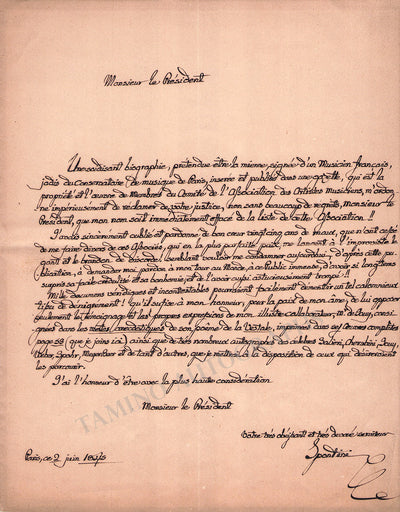 Monsieur le Président
Une soidisant biographie, prétendue être la mienne, signée d'un Musicien français,
jadis du Conservatoire de musique de Paris, insérée et publiée dans une gazette, qui est la
propriété et l'œuvre de Membres du Comité de l'Association des Artistes musiciens, m'ordon-
ne impérieusement de réclamer de votre justice, non sans beaucoup de regrets, Monsieur le
Président, que mon nom soit immédiatement effacé de la liste de cette Association!!
J'avais sincèrement oublié et pardonné de bon cœur vingt cinq ans de maux, que n'ont cessé
de me faire divers de ces Associés, qui en la plus parfaite paix me lancent à l'improviste le
gant et le brandon de discorde! semblant vouloir me condamner aujourdhui, d'après cette pu-
blication, à demander moi pardon à mon tour au Monde, au Public immense, d'avoir si longtems
surpris sa facile crédulité et sa bonhomie et de l'avoir aussi audacieusement trompé!!
Mille documens véridiques et incontestables pourraient facilement démentir un tel calomnieux
tissu de dénigrement! qu'il suffise à mon honneur, pour la paix de mon âme, de lui opposer
seulement le témoignage et les propres expressions de mon illustre collaborateur, M. de Jouy, consi-
gnées dans les notes anecdotiques de son poème de la Vestale, imprimées dans ses Œuvres complètes
page 59 (que je joins ici) ainsi que de très nombreux autographes des célèbres Salieri, Cherubini, Jouy,
Weber, Spohr, Meyerbeer et de tant d'autres, que je mettrai à la disposition de ceux qui désireroient
les parcourir.
J'ai l'honneur d'être avec la plus haute considération
Monsieur le Président
Votre très obéissant et très dévoué serviteur
Spontini
Paris, ce 2 juin
TAMINO